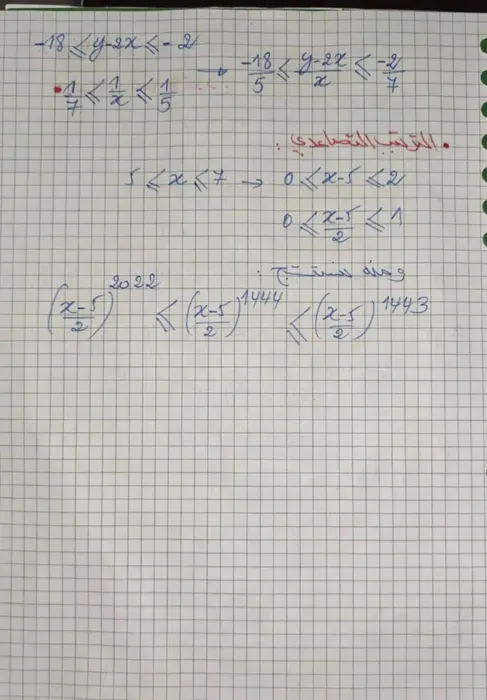 -18 ≤ y-2x ≤ -2
1/7 ≤ 1/x ≤ 1/5 → -18/5 ≤ (y-2x)/x ≤ -2/7
الترتيب التصاعدي :
5 ≤ x ≤ 7 → 0 ≤ x-5 ≤ 2
0 ≤ (x-5)/2 ≤ 1
ومنه نستنتج :
((x-5)/2)^2022 ≤ ((x-5)/2)^1444 ≤ ((x-5)/2)^1443